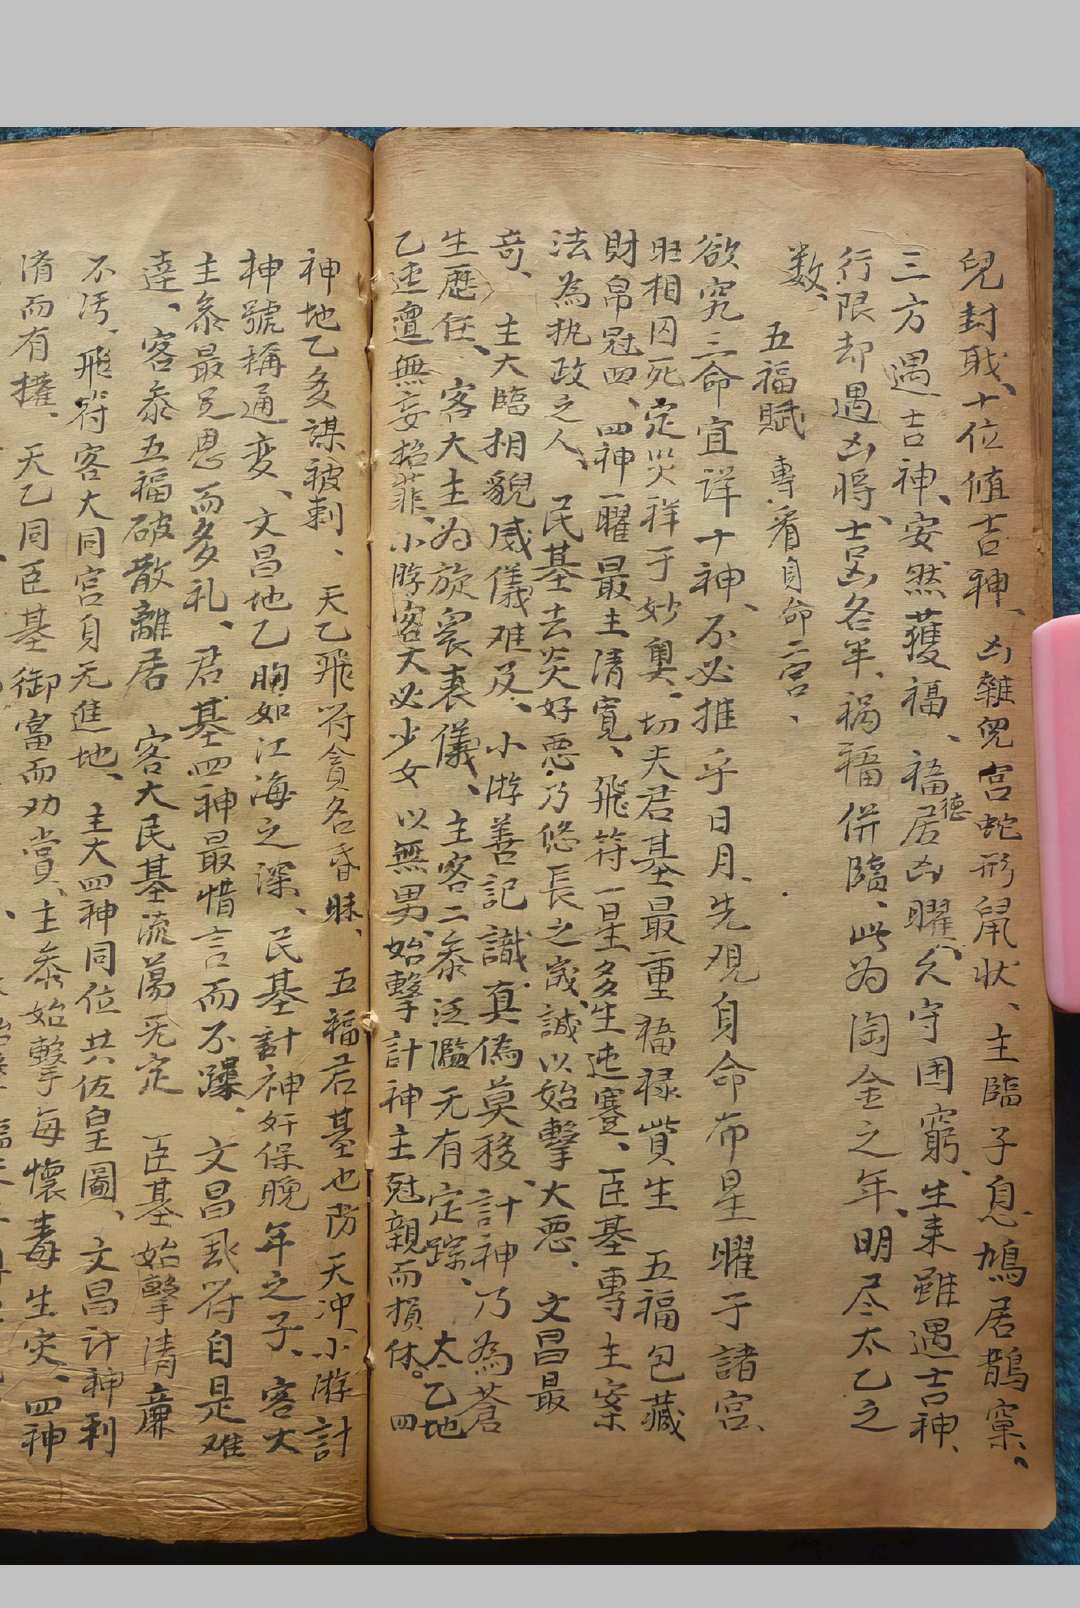 兒封戝、十位值吉神、凶雜兜宮蛇形鼠状、主臨子息、鳩居鵲窠、
三方遇吉神、安然獲福、福德居凶曜、久守困窮、生来雖遇吉神、
行限却遇凶将、吉凶各半、祸福併臨、此为陶金之年、明尽太乙之
数、
五福賦 專看身命二宮、
欲究三命宜详十神、不必推乎日月、先观身命布星曜于諸宮、
旺相囚死定災祥于妙奥、切夫君基最重福禄貲生 五福包藏
財帛冠四、四神一曜最主清寛、飛符一星多生迍蹇、臣基專主案
法為执政之人、民基去炎好悪、乃悠長之歳、誠以始擊大悪、文昌最
奇、主大臨相貌威儀难及、小游善記識真偽莫移、計神乃為蒼
生歷任、客大主为旋裳表儀、主客二叅泛濫无有定踪、太乙地
乙迍邅無妄招菲、小游客大必少女以無男、始擊計神主尅親而損体。四
神地乙多謀被刺、天乙飛符貪名昏昧、五福君基也防天冲小游計
神號稱通变、文昌地乙胸如江海之深、民基計神奸保晚年之子、客大
主叅最足恩而多礼、君基四神最惜言而不躁、文昌飛符自是难
達、客叅五福破散離居 客大民基流蕩无定 臣基始擊清亷
不污、飛符客大同宮身无進地、主大四神同位共佐皇圖、文昌计神利
淯而有搉、天乙同臣基御富而劝賞、主叅始擊每懷毒生灾、四神